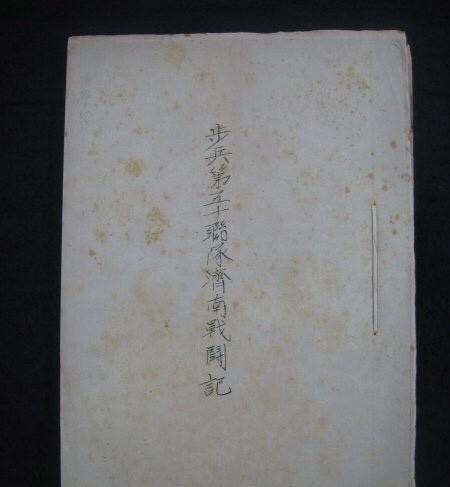 歩兵第五十聯隊濟南戰闘記